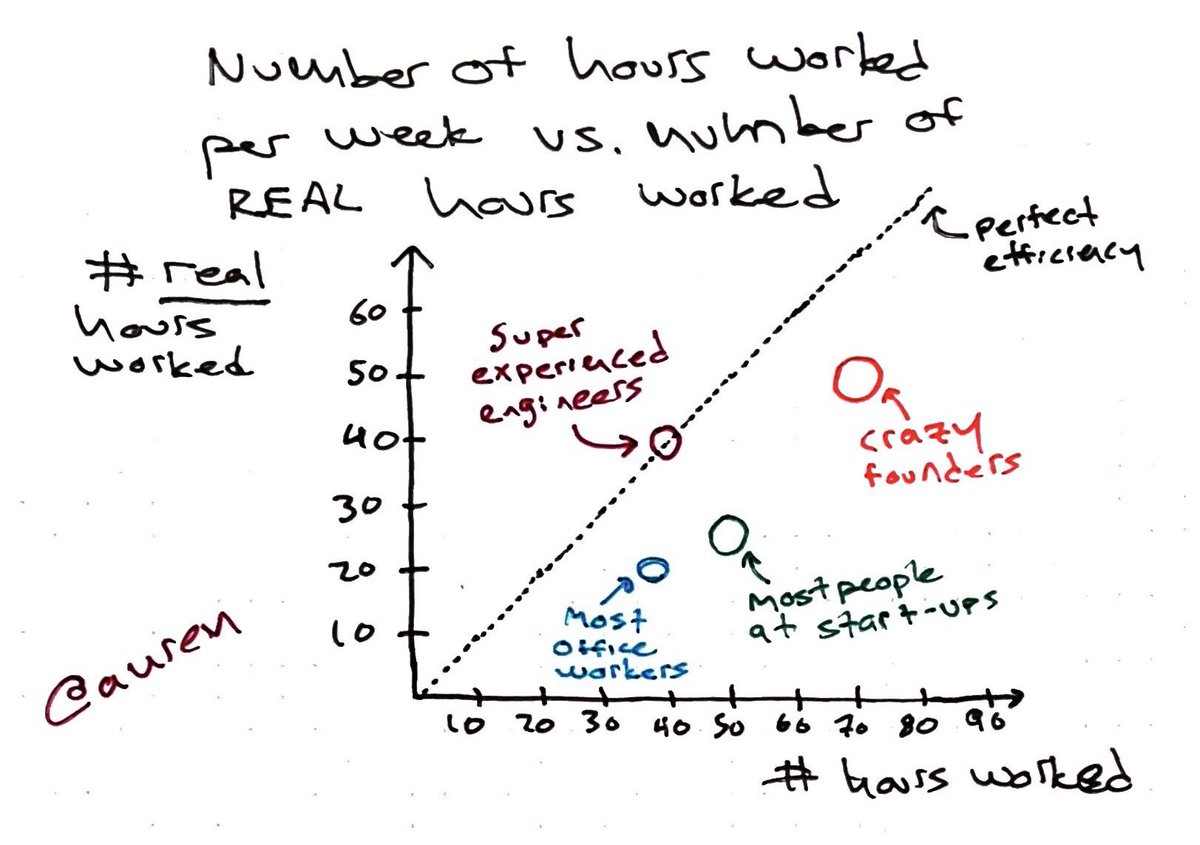 Number of hours worked
per week vs. number of
REAL hours worked
perfect
efficiency
# real
hours
worked
60
50
40
30
20
10
Super
experienced
engineers
crazy
founders
Most people
at start-ups
Most
office
workers
@auren
10 20 30 40 50 60 70 80 90
# hours worked